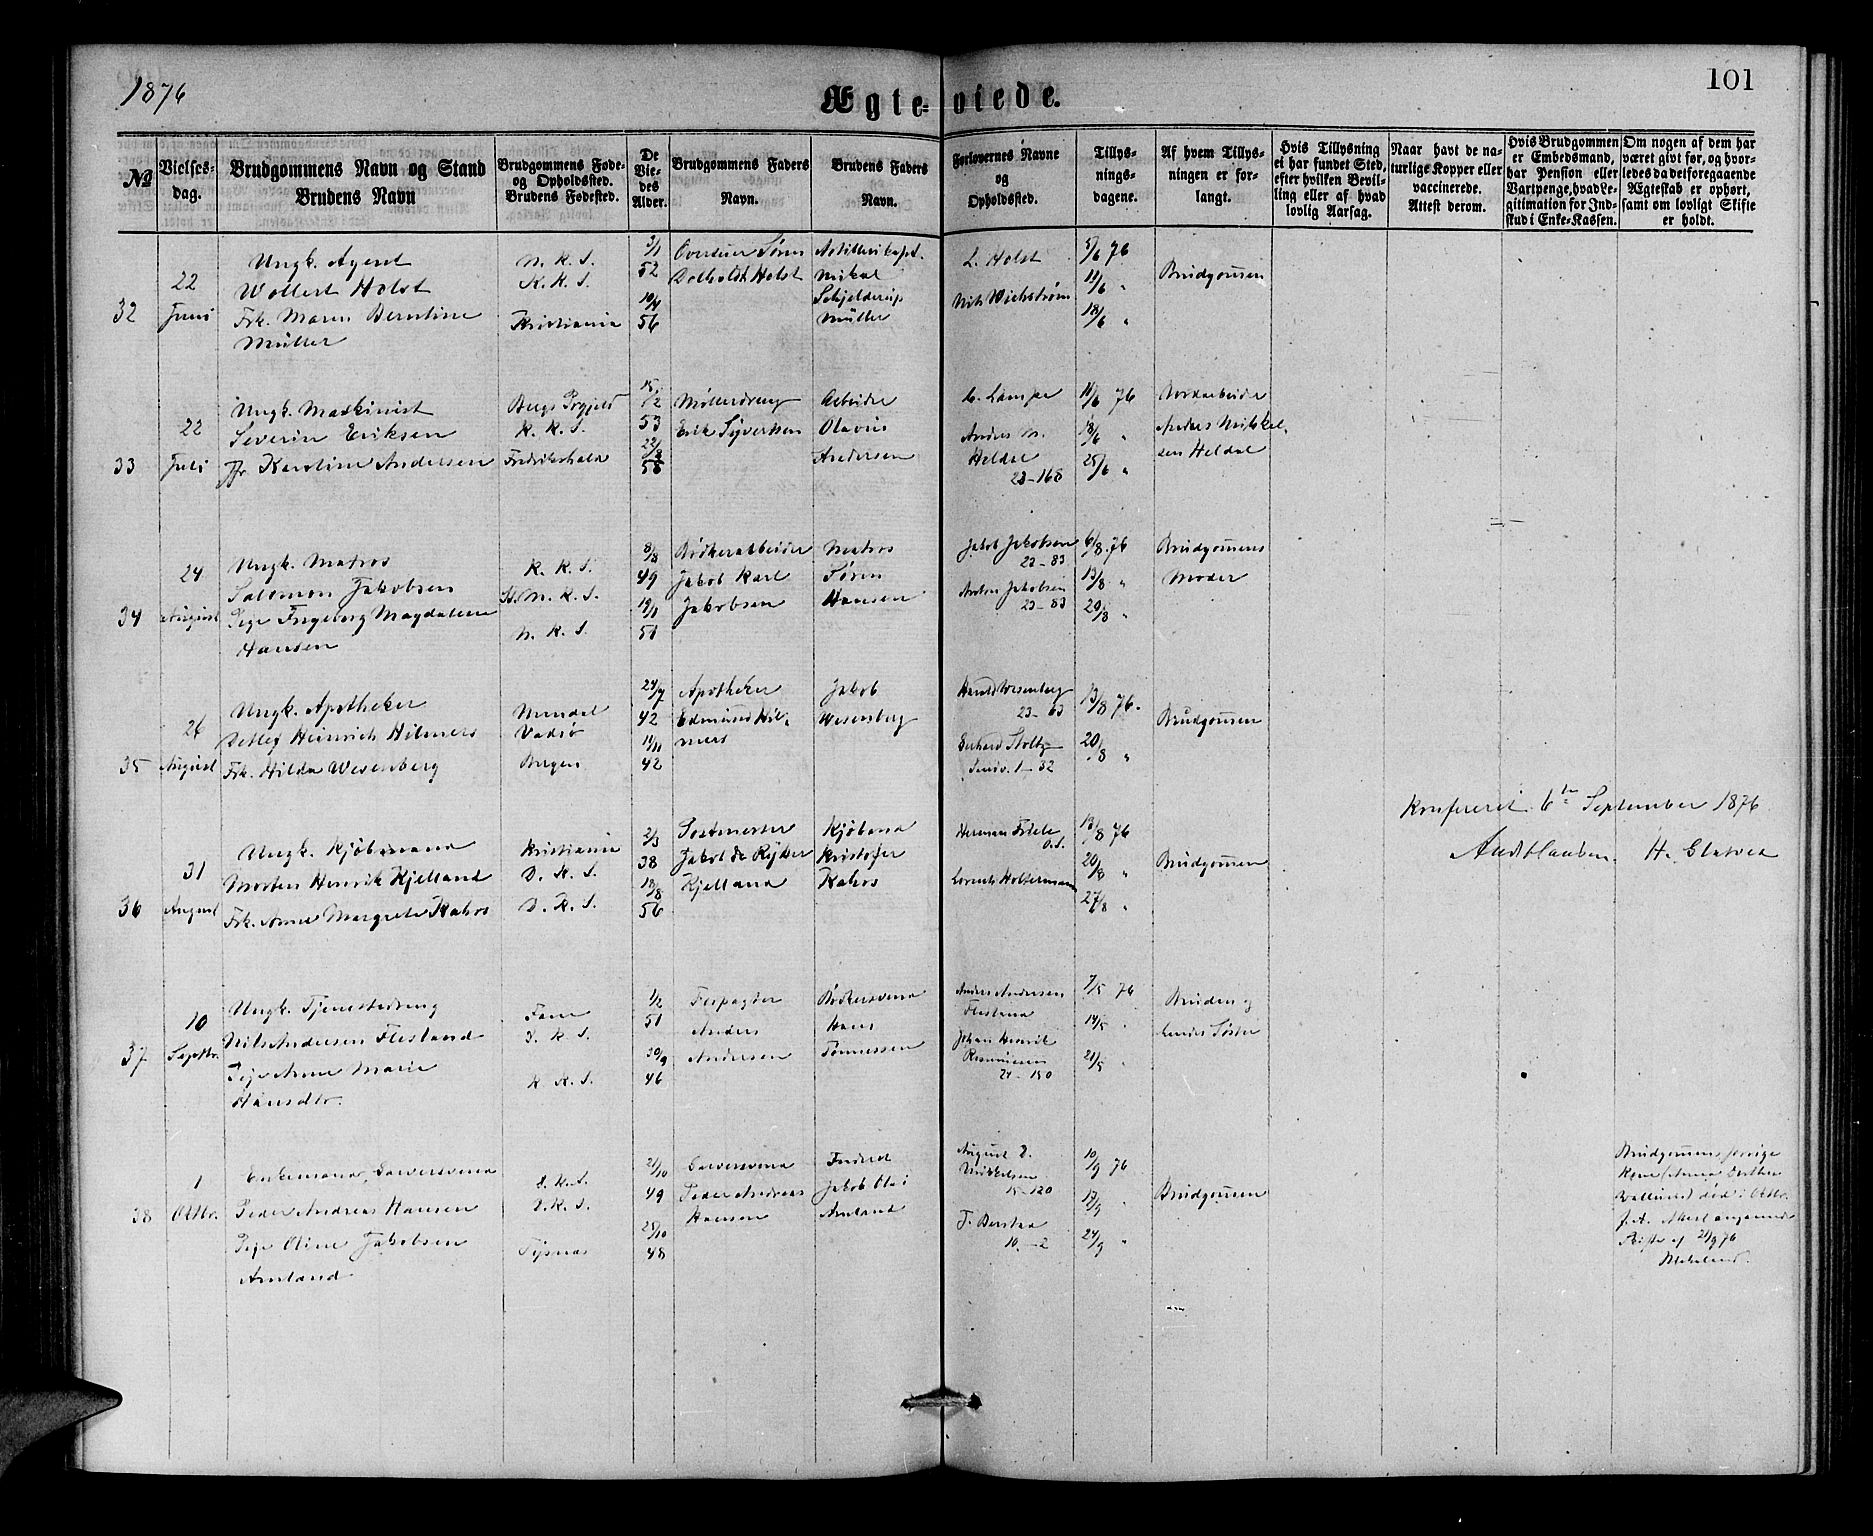 1876
Ægte-viede.
101
No
Vielses-
dag.
Brudgommens Navn og Stand
Brudens Navn
Brudgommens Føde-
og Opholdssted.
Brudens Fødested.
De
Vie-
des
Alder.
Brudgommens Faders
Navn.
Brudens Faders
Navn.
Forlovernes Navne
og
Opholdssted.
Tillys-
nings-
dagene.
Af hvem Tillys-
ningen er for-
langt.
Hvis Tillysning
ei har fundet Sted,
efter hvilken Bevil-
ling eller af hvad
lovlig Aarsag.
Naar havt de na-
turlige Kopper eller
vaccinerede.
Attest derom.
Hvis Brudgommen
er Embedsmand,
har Pension eller
Vartpenge, hvad Le-
gitimation for Ind-
skud i Enke-Kassen.
Om nogen af dem har
været gift før, og hvor-
ledes da det foregaaende
Ægteskab er ophørt,
samt om lovligt Skifte
er holdt.
32
22
Juni
Ungk. Agent
Wollert Holst
Frk. Maren Berntine
Müller
N. K. S.
K. K. S.
Kristiania
3/1
52
10/4
56
Overtuer Søren
Holst
Artillerikapt.
Mikal
Schjelderup
Müller
L. Holst
Nils Wickstrøm
5/6 76
11/6 "
18/6 "
Brudgomen
33
22
Juli
Ungk. Maskinist
Severin Eriksen
Jfr. Karoline Andersen
Bergs Prgjeld
K. K. S.
Fredrikshald
15/12
53
22/8
58
Møllerdreng
Erik Syvertsen
Arbeider
Olavus
Andersen
C. Lampe
Anders M.
Heldal
23-168
11/6 76
18/6 "
25/6 "
Nordarbeider
Anders Mikkel-
sen Heldal
34
24
August
Ungk. Matros
Salomon Jakobsen
Pige Ingeborg Magdalene
Hansen
K. K. S.
St. M. K. S.
N. K. S.
8/8
49
19/11
51
Bødkerarbeider
Jakob Karl
Jakobsen
Matros
Søren
Hansen
Jakob Jakobsen
23-83
Anton Jakobsen
23-83
6/8 76
13/8 "
20/8 "
Brudgomens
Moder
35
26
August
Ungk. Apotheker
Detlef Heinrich Hilmers
Frk. Hilda Wesenberg
Mandal
Vadsø
Bergen
24/7
42
11/11
42
Apotheker
Edmund Hil-
mers
Jakob
Wesenberg
Harald Wesenberg
23-63
Gerhard Stoltz
Sandv. 1-32
13/8 76.
20/8 "
Brudgomen
Konfereret 6te September 1876
H. Glatved
36
31
August
Ungk. Kjøbmand
Morten Henrik Kjelland
Frk. Anne Margrete Kahrs
Kristiania
D. K. S.
D. K. S.
2/3
38
13/8
56
Postmester
Jakob de Rytter
Kjelland
Kjøbmand
Kristofer
Kahrs
Herman Friele
D.S.
Lorentz Holtermann
13/8 76
20/8 "
27/8 "
Brudgomen
37
10
Septbr.
Ungk. Tjenestedreng
Nils Andersen Flesland
Pige Anne Marie
Hansdtr.
Fane
D. K. S.
K. K. S.
1/2
51
30/9
46
Forpagter
Anders
Andersen
Bødkersvend
Hans
Tønnessen
Anders Andersen
Flesland
Johan Henrik
Rasmussen
24-150
7/5 76
14/5 "
21/5 "
Bruden og
hendes Søster
38
1
Oktbr.
Enkemand, Garversvend
Peder Andreas Hansen
Pige Oline Jakobsen
Amland
D. K. S.
D. K. S.
Tysnæs
21/10
49
25/10
48
Garversvend
Peder Andreas
Hansen
Inderst
Jakob Olai
Amland
August L.
Mikkelsen
15-120
T. Berstad
10-2
10/9 76
17/9 "
24/9 "
Brudgomen
Brudgomens forrige
Kone (Anna Dorthea
død i Oktbr.
Skifte af 21/9 76